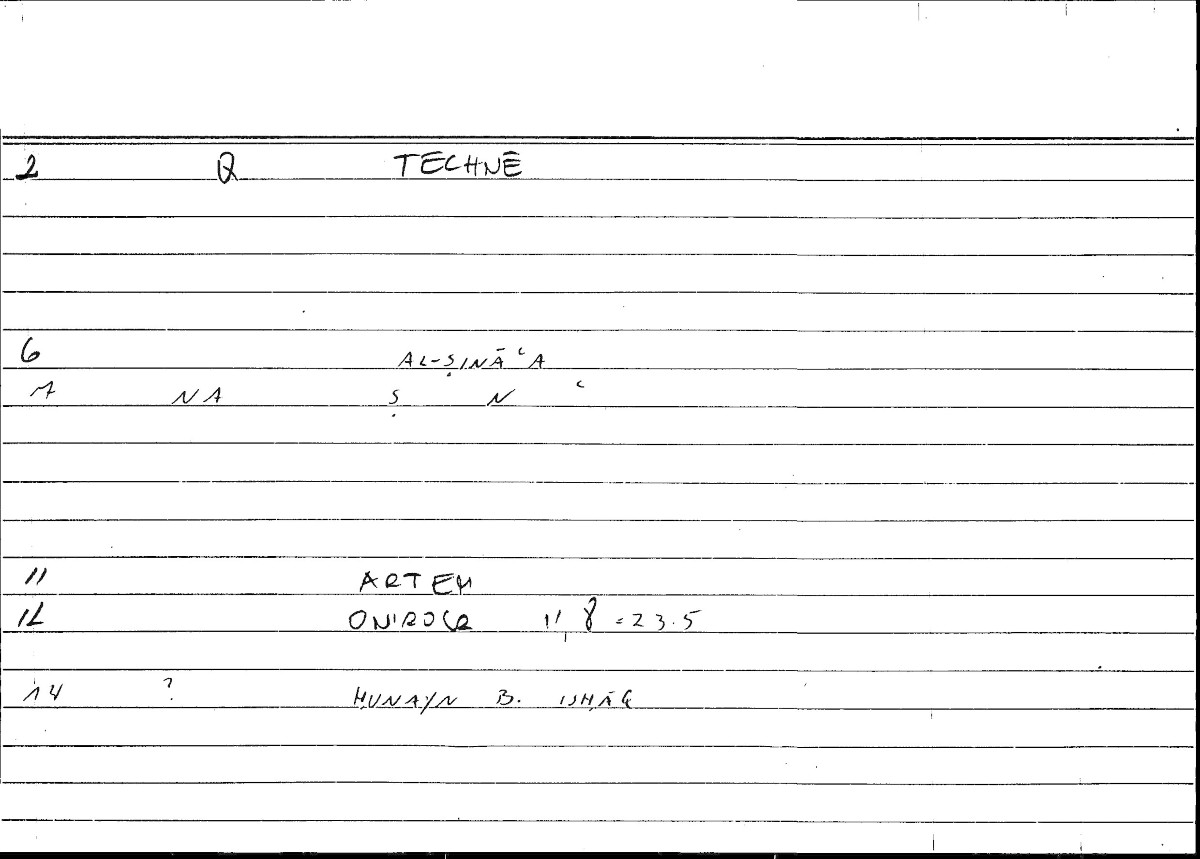 2 Q TECHNĒ
6 AL-ṢINĀʿA
7 NA Ṣ N ʿ
11 ARTEM
12 ONIROCR 8 = 23.5
14 ? ḤUNAYN B. ISḤĀQ